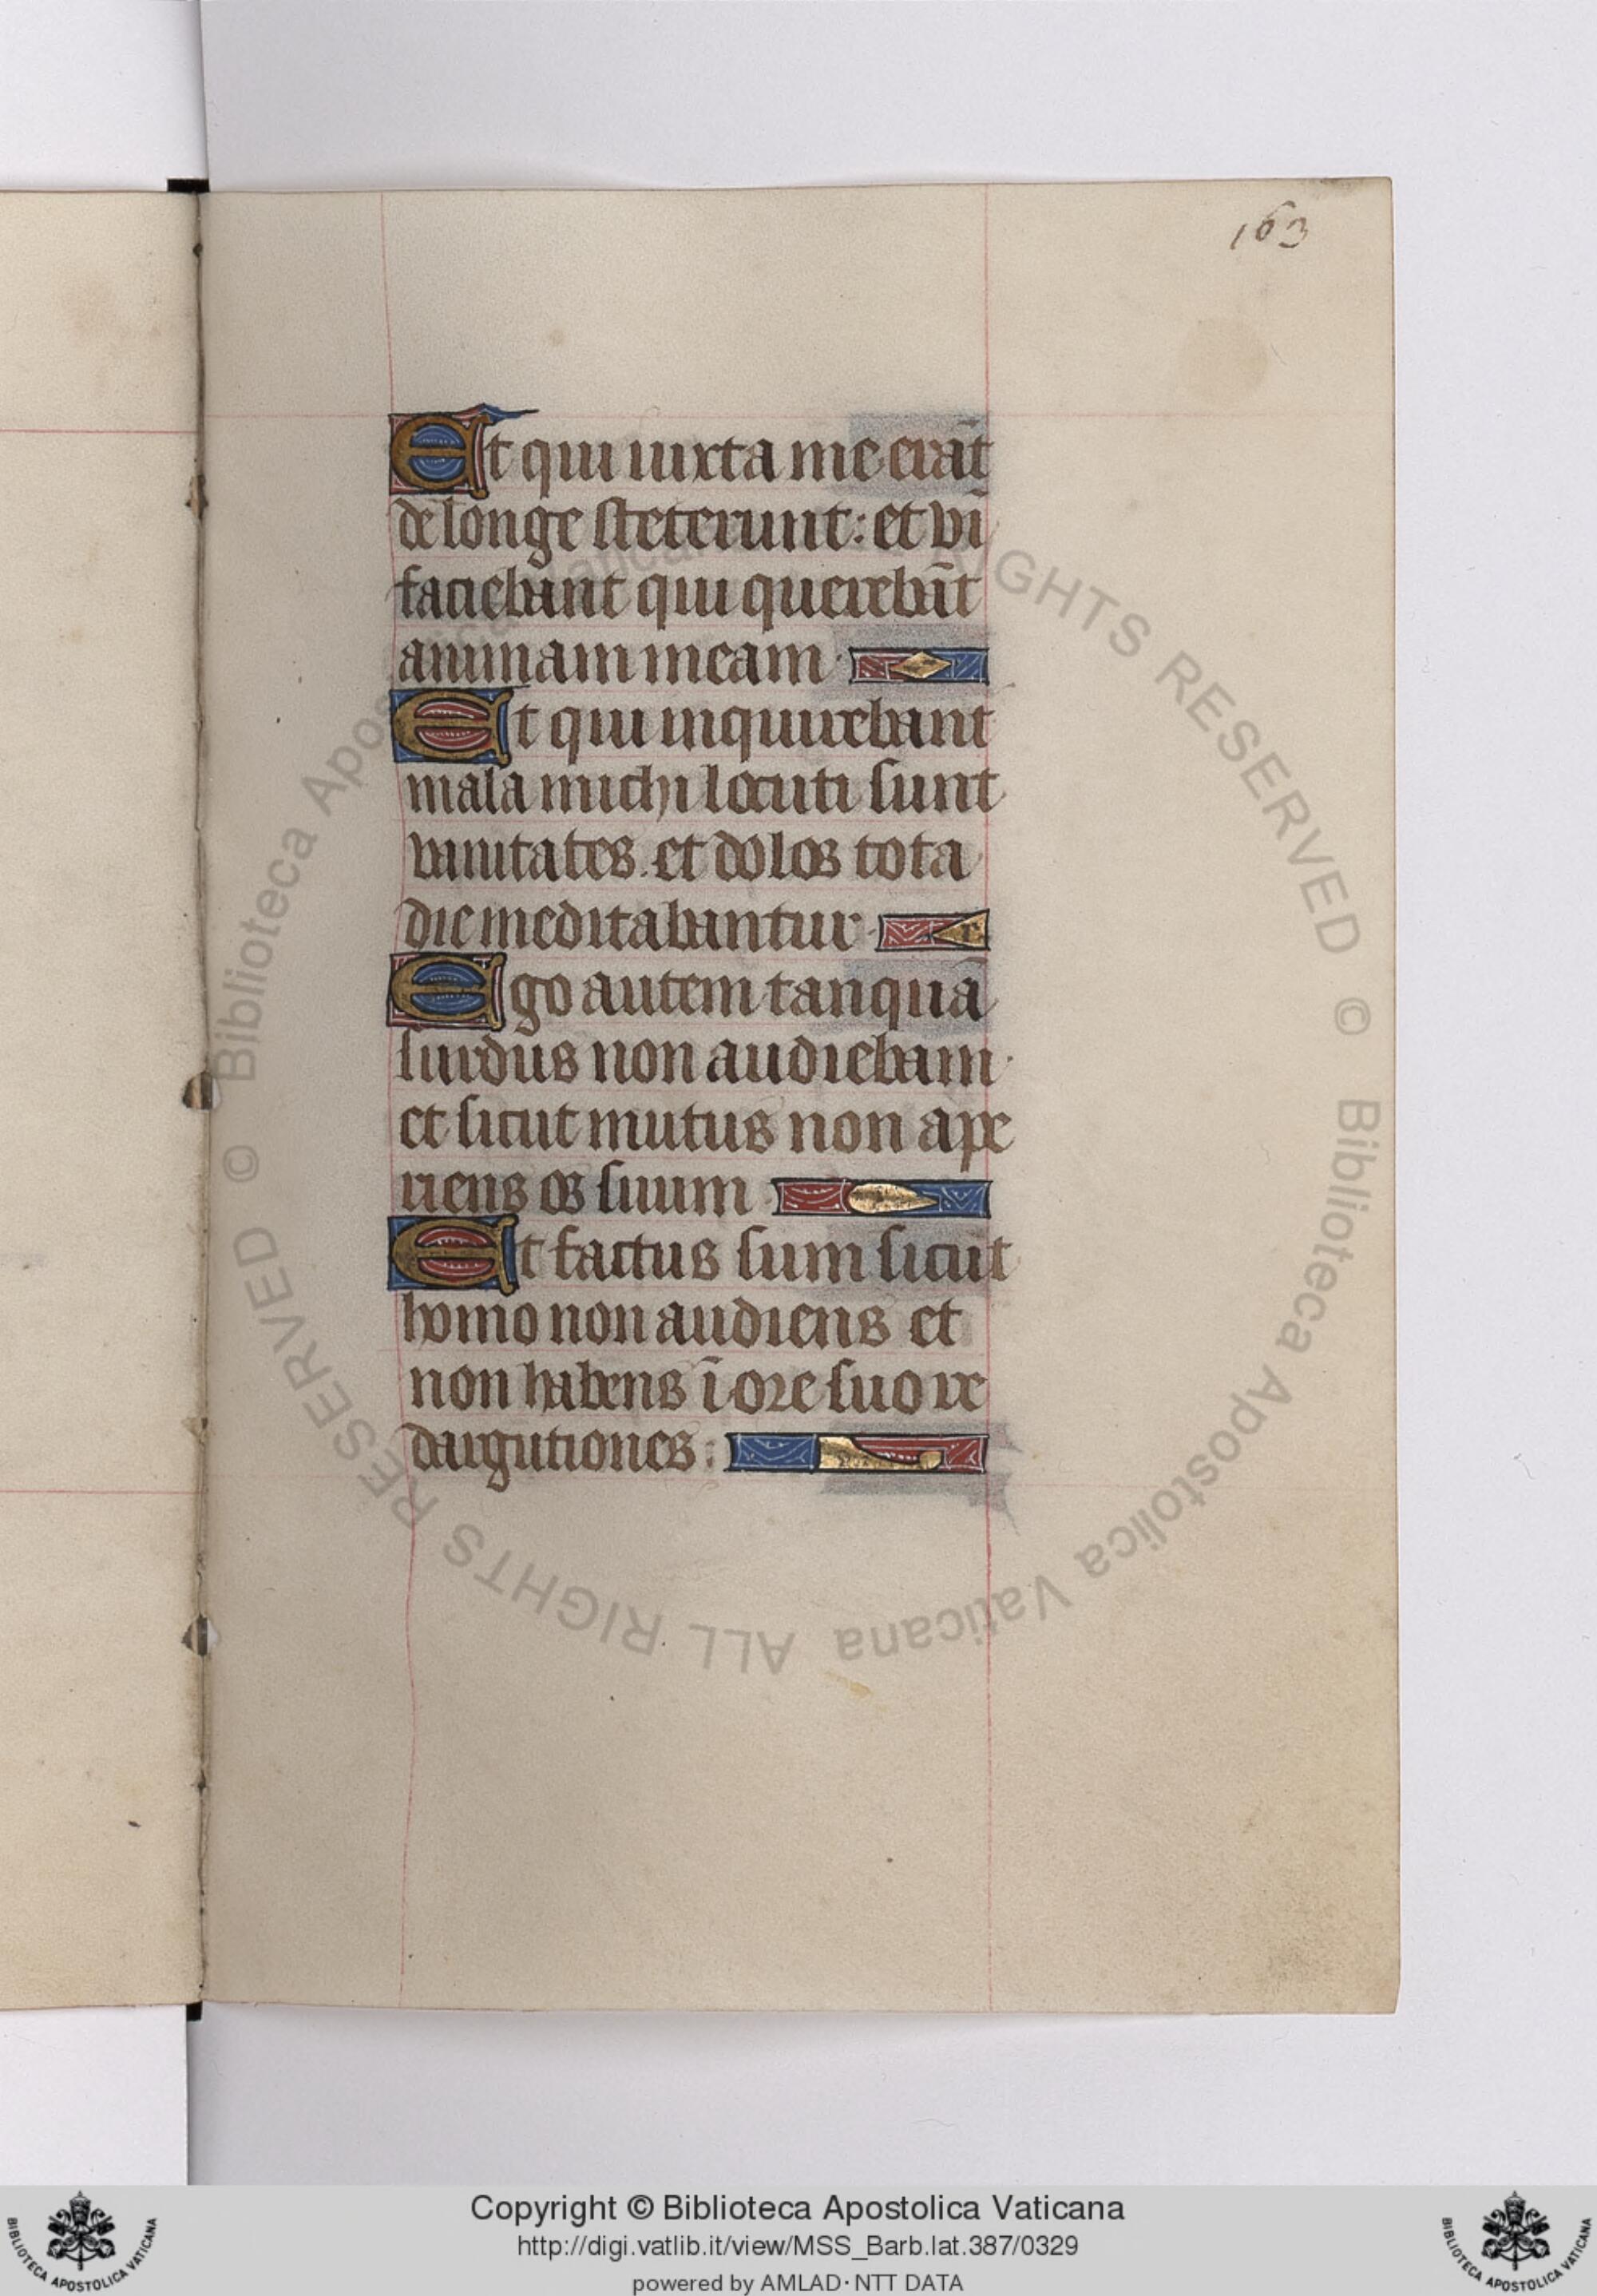 163
Et qui iuxta me erāt
de longe steterunt : et vī
faciebant qui querebāt
animam meam .
Et qui inquirebant
mala michi locuti sunt
vanitates . et dolos tota
die meditabantur .
Ego autem tanquā
surdus non audiebam .
et sicut mutus non ape
riens os suum
Et factus sum sicut
homo non audiens et
non habens ī ore suo re
dargutiones :
© Biblioteca Apostolica Vaticana ALL RIGHTS RESERVED
© Biblioteca Apostolica Vaticana ALL RIGHTS RESERVED
Copyright © Biblioteca Apostolica Vaticana
http://digi.vatlib.it/view/MSS_Barb.lat.387/0329
powered by AMLAD·NTT DATA
BIBLIOTECA APOSTOLICA VATICANA
BIBLIOTECA APOSTOLICA VATICANA